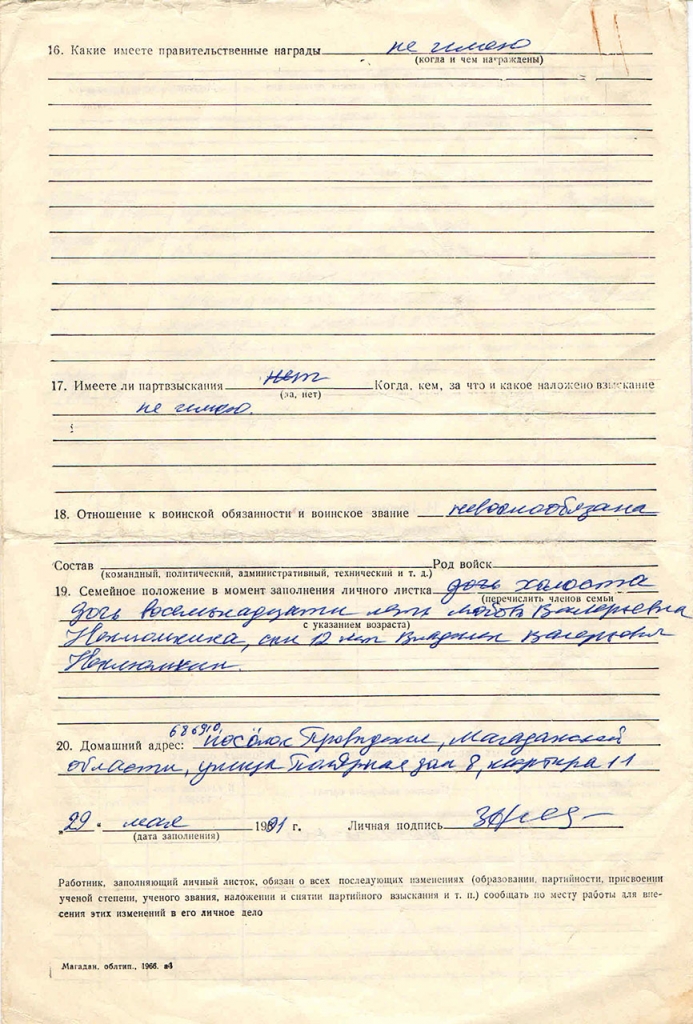 16. Какие имеете правительственные награды не имею
(когда и чем награждены)
17. Имеете ли партвзыскания нет Когда, кем, за что и какое наложено взыскание
(да, нет)
не имею.
18. Отношение к воинской обязанности и воинское звание невоеннообязана
Состав Род войск
(командный, политический, административный, технический и т. д.)
19. Семейное положение в момент заполнения личного листка дочь холоста
(перечислить членов семьи
дочь восемьнадцати лет Валерьевна
с указанием возраста)
сын 12 лет Владимир Валерьевич
686910,
20. Домашний адрес: посёлок Провидение, Магаданской
области, улица Полярная дом 8, квартира 11
„29" мая 1991 г. Личная подпись
(дата заполнения)
Работник, заполняющий личный листок, обязан о всех последующих изменениях (образовании, партийности, присвоении
ученой степени, ученого звания, наложении и снятии партийного взыскания и т. п.) сообщать по месту работы для вне-
сения этих изменений в его личное дело
Магадан. облтип., 1966.